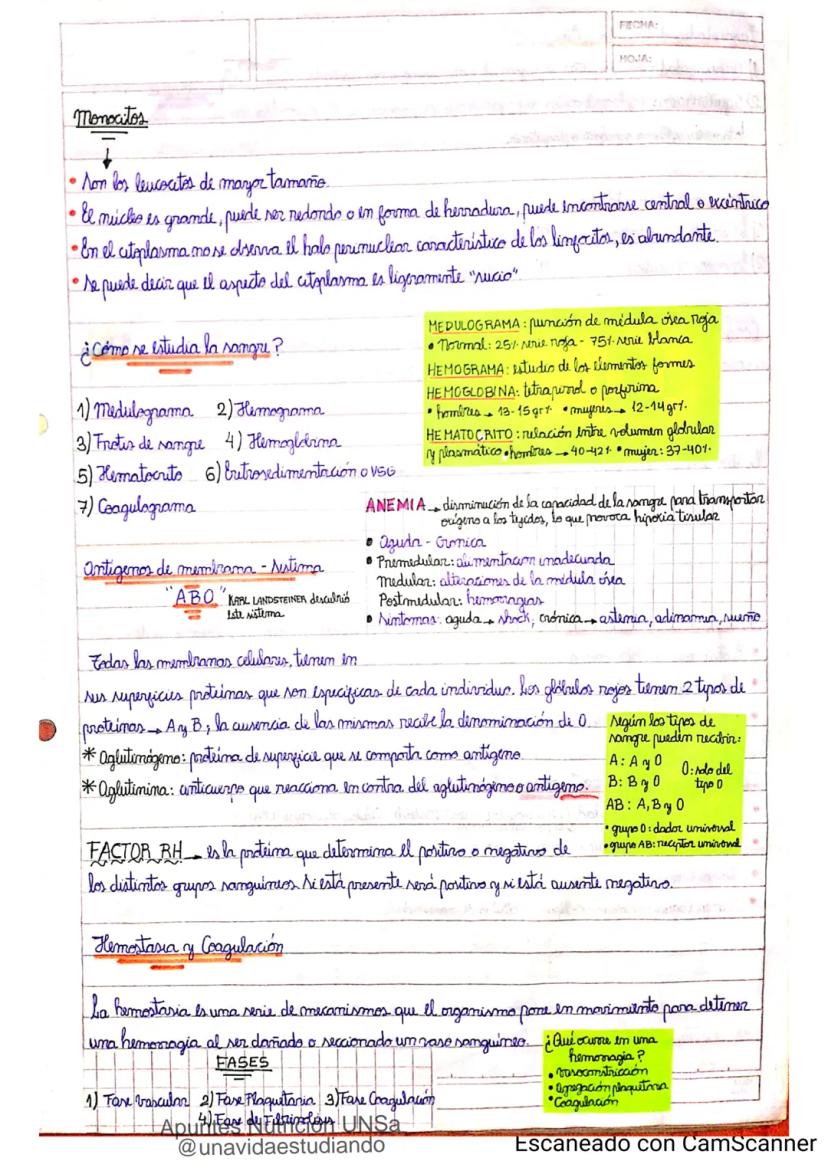 FECHA:
HOJA:
Monocitos
• Son los leucocitos de mayor tamaño.
• El núcleo es grande, puede ser redondo o en forma de herradura, puede encontrarse central o excéntrico
• En el citoplasma no se observa el halo perinuclear característico de los linfocitos, es abundante.
• Se puede decir que el aspecto del citoplasma es ligeramente "sucio"
¿Cómo se estudia la sangre?
1) Medulograma 2) Hemograma
3) Frotis de sangre 4) Hemoglobina
5) Hematocrito 6) Eritrosedimentación o VSG
7) Coagulograma
MEDULOGRAMA: punción de médula ósea roja
• Normal: 25% serie roja - 75% serie blanca
HEMOGRAMA: estudio de los elementos formes
HEMOGLOBINA: tetrapirrol o porfirina
• hombres → 13-15 gr% • mujeres → 12-14 gr%
HEMATOCRITO: relación entre volumen globular
y plasmático • hombres → 40-42% • mujer: 37-40%
ANEMIA → disminución de la capacidad de la sangre para transportar
oxígeno a los tejidos, lo que provoca hipoxia tisular
• Aguda - Cronica
• Premedular: alimentacion inadecuada
Medular: alteraciones de la médula ósea
Postmedular: hemorragias
• Sintomas: aguda → shock, crónica → astenia, adinamia, sueño
Antígenos de membrana - Sistema
"ABO" KARL LANDSTEINER descubrió
este sistema
Todas las membranas celulares, tienen en
sus superficies proteínas que son específicas de cada individuo. Los glóbulos rojos tienen 2 tipos de
proteínas → A y B; la ausencia de las mismas recibe la denominación de O.
* Aglutinógeno: proteína de superficie que se comporta como antígeno.
* Aglutinina: anticuerpo que reacciona en contra del aglutinógeno o antígeno.
Según los tipos de
sangre pueden recibir:
A: A y O
B: B y O
O: solo del
tipo O
AB: A, B y O
• grupo O: dador universal
• grupo AB: receptor universal
FACTOR RH → es la proteína que determina el positivo o negativo de
los distintos grupos sanguíneos. Si está presente será positivo y si está ausente negativo.
Hemostasia y Coagulación
La hemostasia es una serie de mecanismos que el organismo pone en movimiento para detener
una hemorragia al ser dañado o seccionado un vaso sanguíneo.
FASES
1) Fase Vascular 2) Fase Plaquitaria 3) Fase Coagulación
4) Fase de Fibrinolisis
¿Qué ocurre en una
hemorragia?
• Vasoconstricción
• Agregación plaquitaria
• Coagulación
Apuntes Nutrición UNSa
@unavidaestudiando
Escaneado con CamScanner